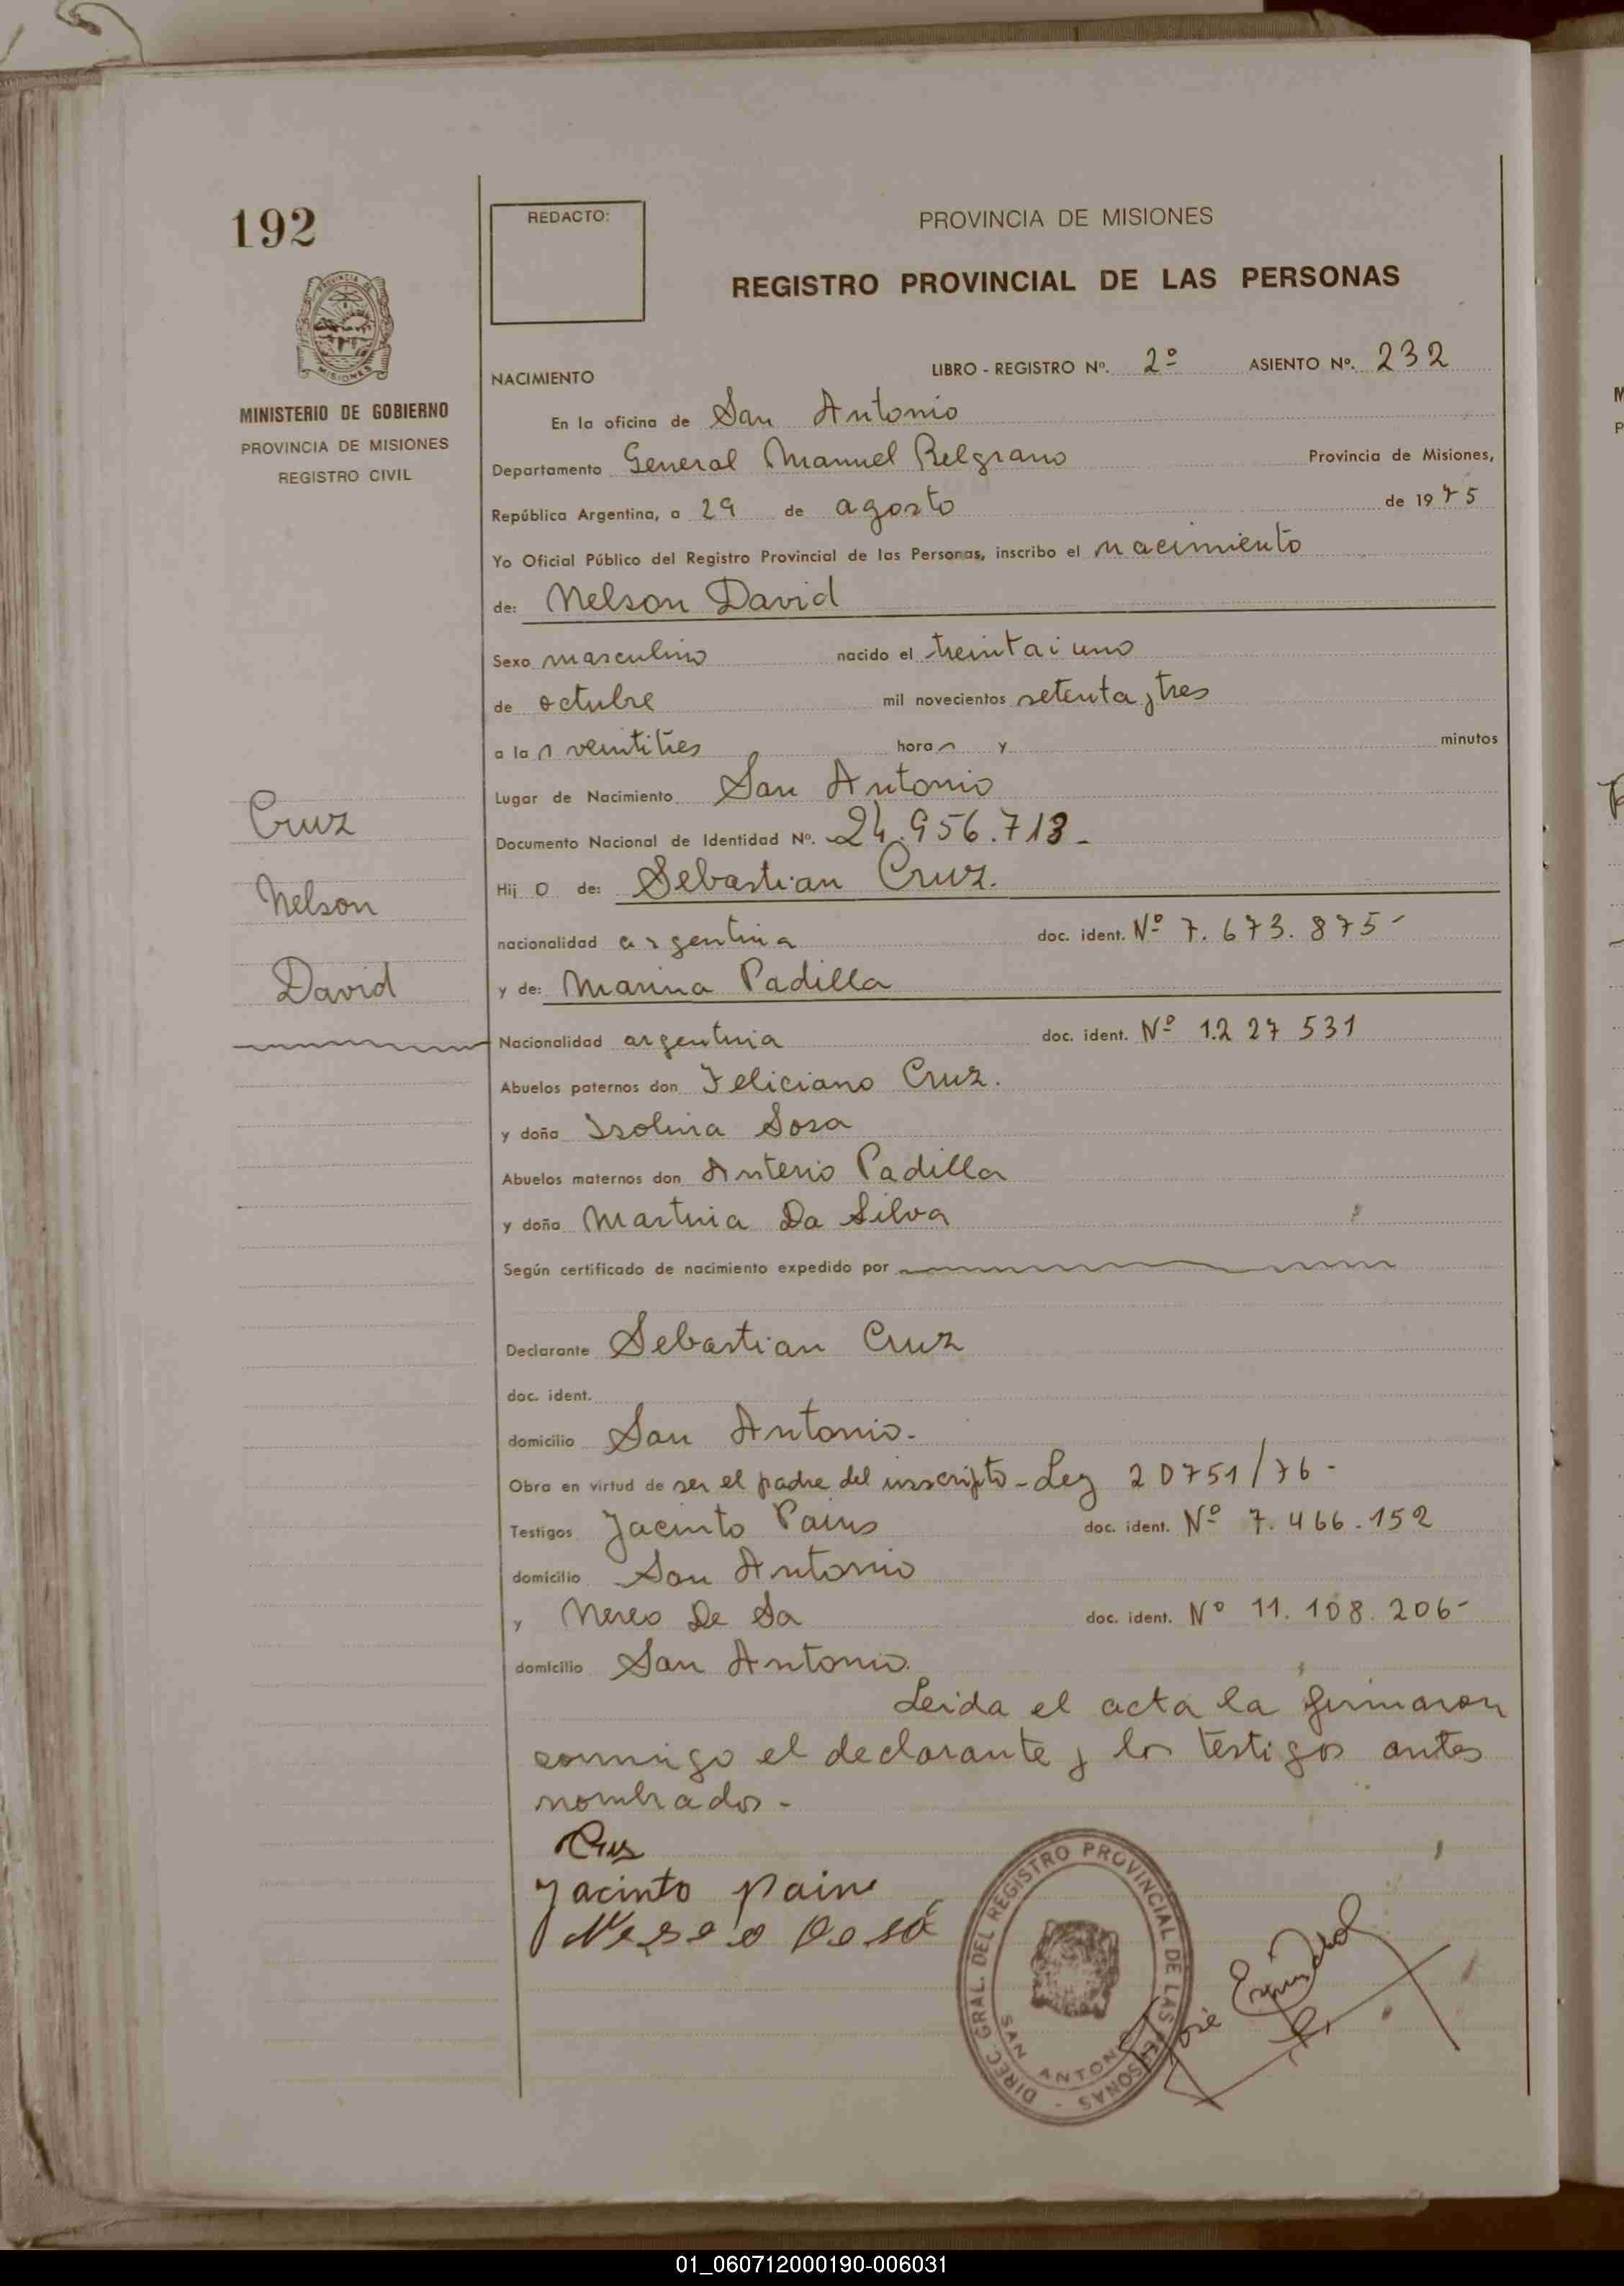 192
REDACTO:
PROVINCIA DE MISIONES
REGISTRO PROVINCIAL DE LAS PERSONAS
PROVINCIA DE
MISIONES
MINISTERIO DE GOBIERNO
PROVINCIA DE MISIONES
REGISTRO CIVIL
NACIMIENTO LIBRO - REGISTRO Nº. 2º ASIENTO Nº. 232
En la oficina de San Antonio
Departamento General Manuel Belgrano Provincia de Misiones,
República Argentina, a 29 de agosto de 1975
Yo Oficial Público del Registro Provincial de las Personas, inscribo el nacimiento
de: Nelson David
Sexo masculino nacido el treinta i uno
de octubre mil novecientos setenta y tres
a las veintitres horas y minutos
Lugar de Nacimiento San Antonio
Documento Nacional de Identidad Nº. 24.956.713-
Hijo de: Sebastian Cruz.
nacionalidad argentina doc. ident. Nº 7.673.875-
y de: Marina Padilla
Nacionalidad argentina doc. ident. Nº 1.227531
Abuelos paternos don Feliciano Cruz.
y doña Isolina Sosa
Abuelos maternos don Anterio Padilla
y doña Martina Da Silva
Según certificado de nacimiento expedido por
Declarante Sebastian Cruz
doc. ident.
domicilio San Antonio.
Obra en virtud de ser el padre del inscripto - Ley 20751/76-
Testigos Jacinto Pains doc. ident. Nº 7.466.152
domicilio San Antonio
y Nereo De Sa doc. ident. Nº 11.108.206-
domicilio San Antonio.
Leida el acta la firmaron
conmigo el declarante y los testigos antes
nombrados.-
Cruz
Nelson
David
Cruz
Jacinto pain
Nereo De sá
DIREC. GRAL. DEL REGISTRO PROVINCIAL DE LAS PERSONAS -
SAN ANTONIO
José
01_060712000190-006031